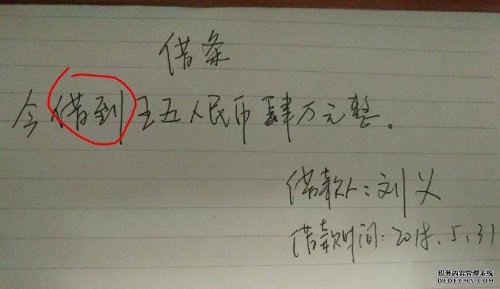 借条
今借到王五人民币肆万元整。
借款人：刘义
借款时间：2018.5.31
织梦内容管理系统
DEDECMS.COM